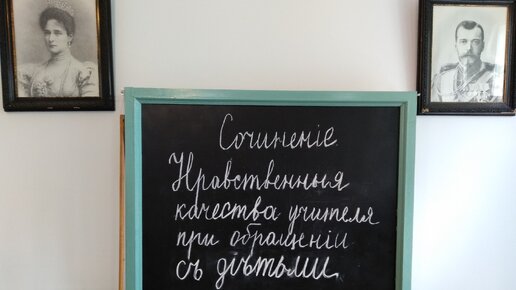 Сочиненіе
Нравственныя
качества учителя
при обращеніи
съ дѣтьми